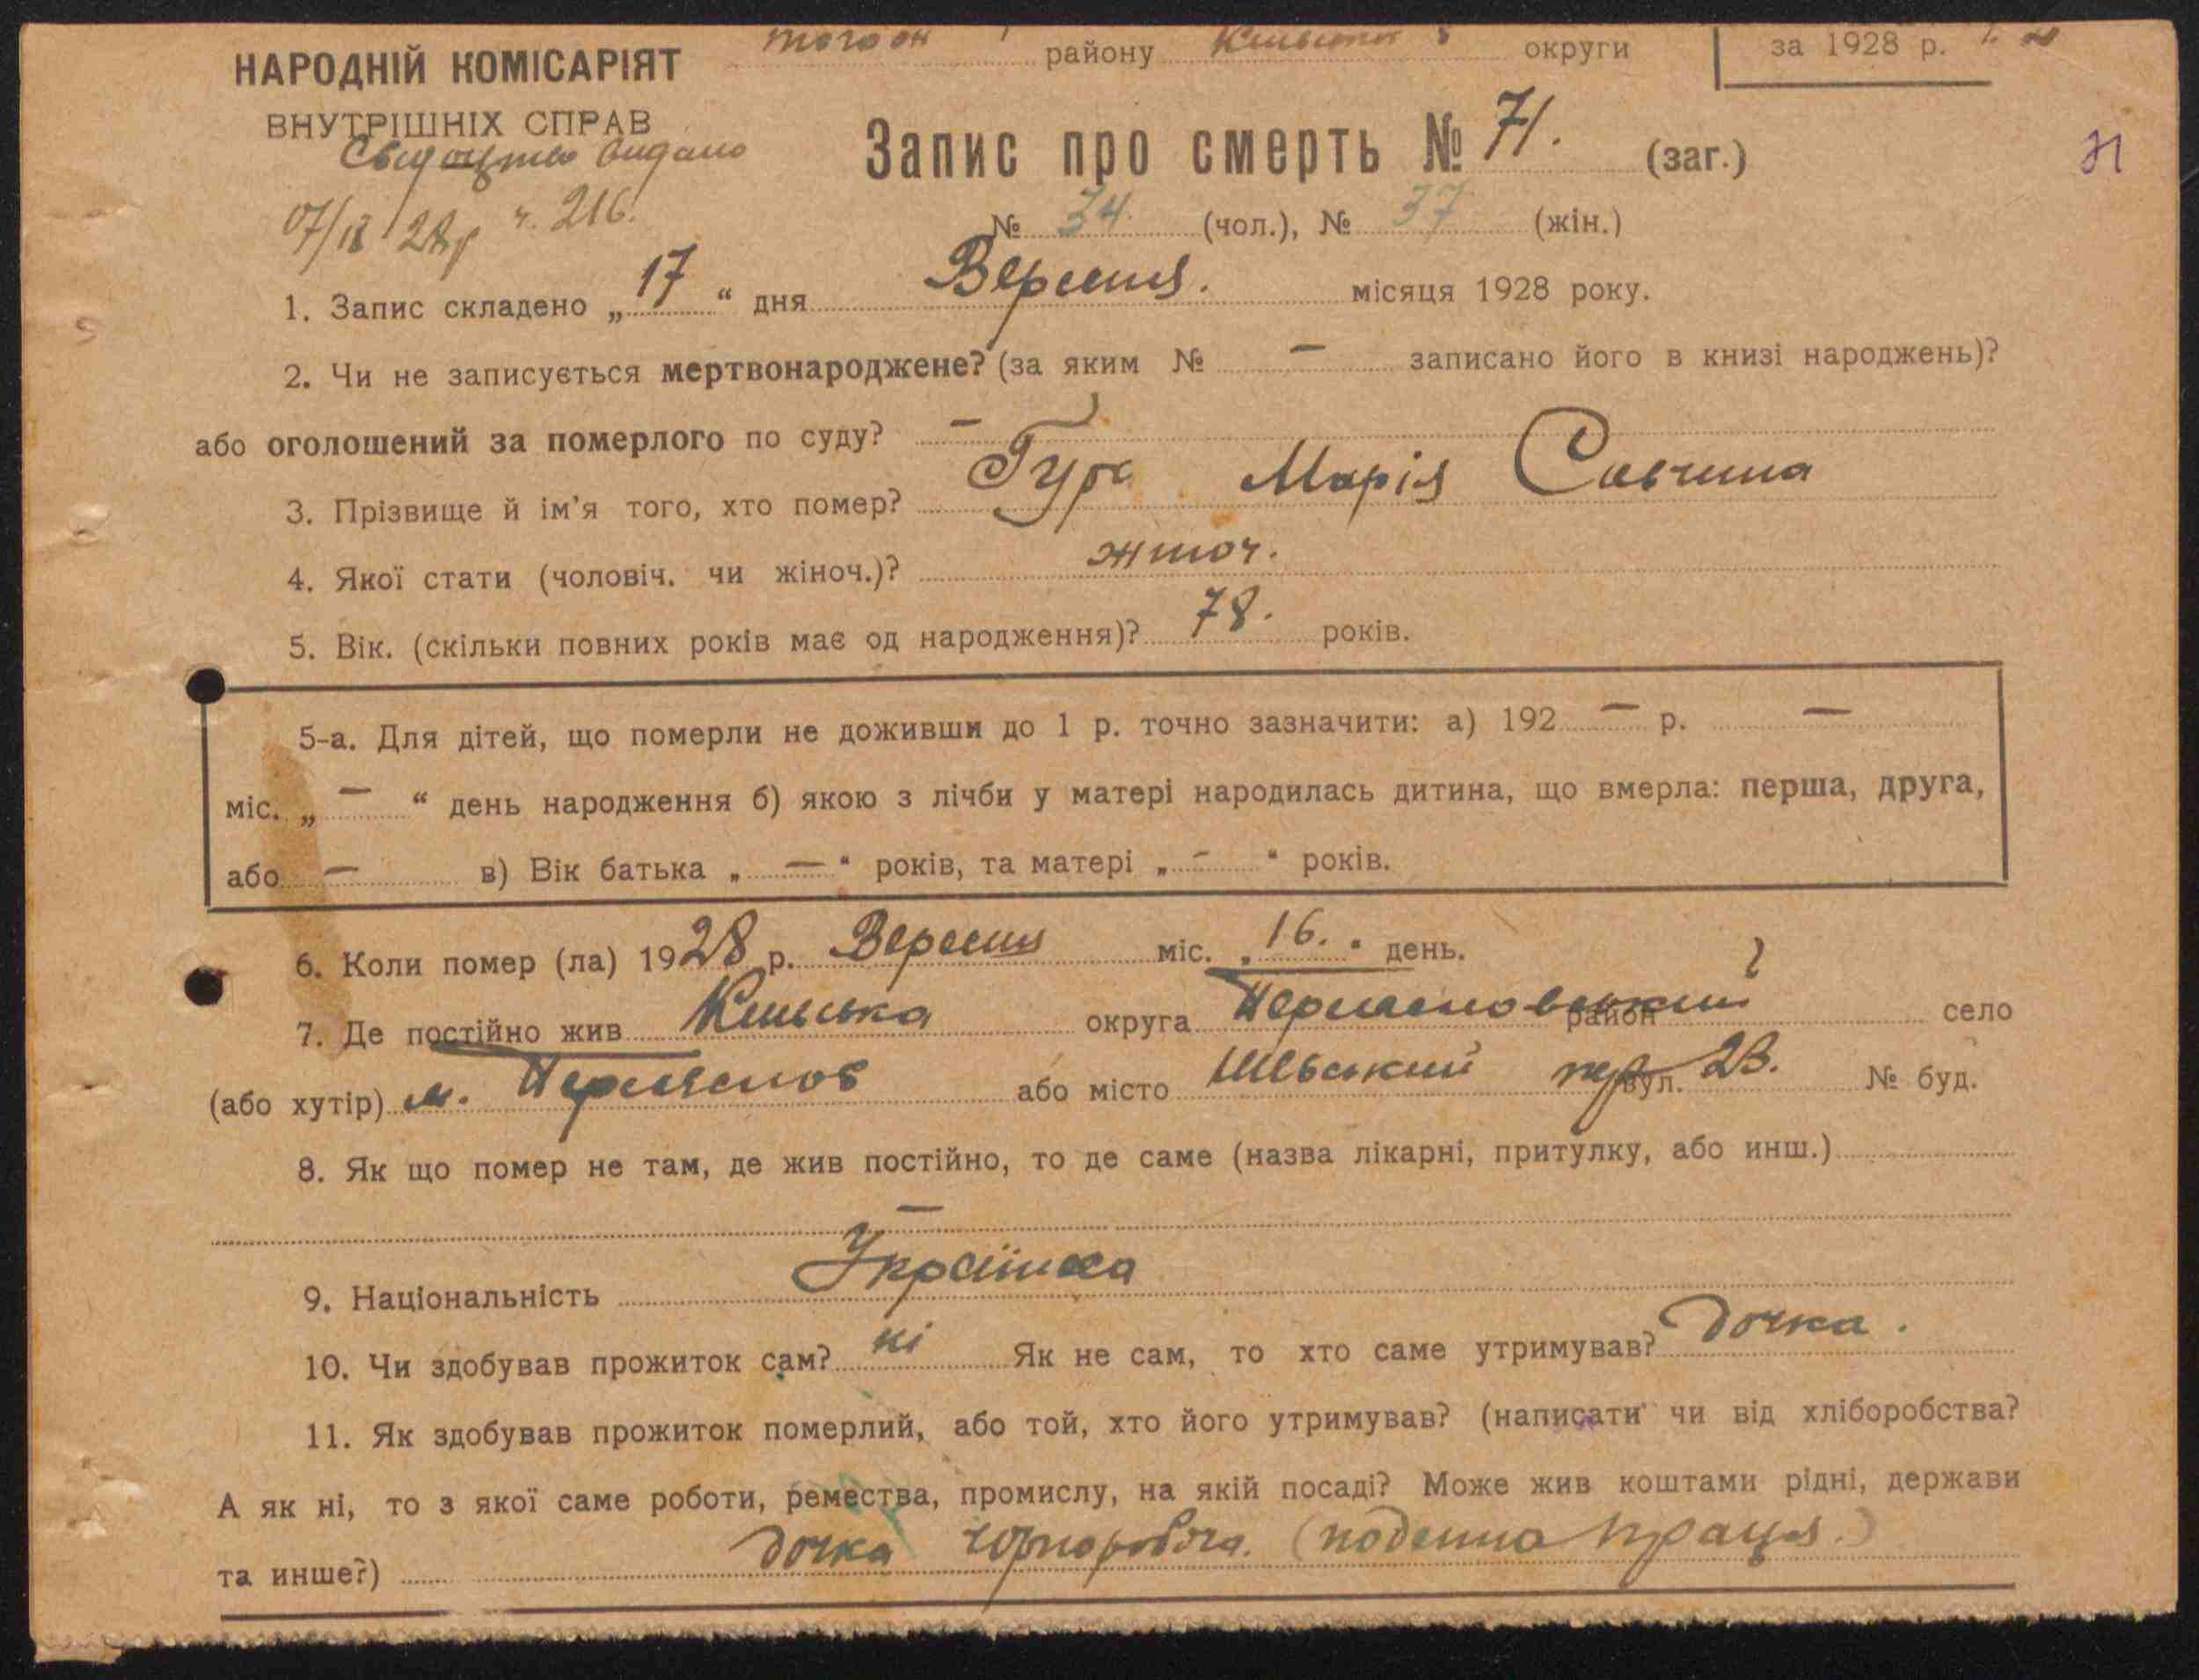 району округи за 1928 р.
НАРОДНІЙ КОМІСАРІЯТ
ВНУТРІШНІХ СПРАВ
Свідоцтво видано
Запис про смерть № 71. (заг.) 71
28р ч. 216.
№ 34 (чол.), № 37 (жін.)
1. Запис складено „ 17 “ дня Вересня. місяця 1928 року.
2. Чи не записується мертвонароджене? (за яким № — записано його в книзі народжень)?
або оголошений за померлого по суду? —
3. Прізвище й ім'я того, хто помер? Марія Савчина
4. Якої стати (чоловіч. чи жіноч.)? жіноч.
5. Вік. (скільки повних років має од народження)? 78. років.
5-а. Для дітей, що померли не доживши до 1 р. точно зазначити: а) 192 — р. —
міс. „ — “ день народження б) якою з лічби у матері народилась дитина, що вмерла: перша, друга,
або — в) Вік батька „ — “ років, та матері „ - “ років.
6. Коли помер (ла) 1928 р. Вересня міс. „ 16. “ день.
7. Де постійно жив округа район село
(або хутір) м. або місто вул. 23. № буд.
8. Як що помер не там, де жив постійно, то де саме (назва лікарні, притулку, або инш.)
—
9. Національність Українка
10. Чи здобував прожиток сам? ні Як не сам, то хто саме утримував? Дочка.
11. Як здобував прожиток померлий, або той, хто його утримував? (написати чи від хліборобства?
А як ні, то з якої саме роботи, ремества, промислу, на якій посаді? Може жив коштами рідні, держави
та инше?) Дочка (поденна праця.)